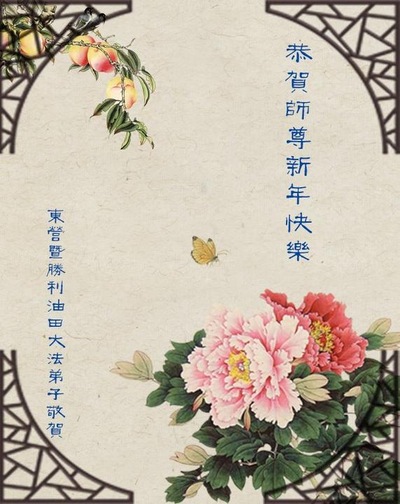 恭賀師尊新年快樂
東營暨勝利油田大法弟子敬賀